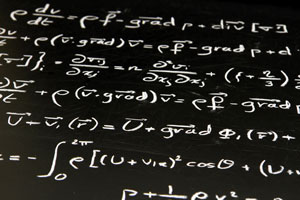 ρ dv̄/dt = ρ f̄ - grad p + div [τ̄]
v̄/dt + ρ (v̄ · grad) v̄ = ρ f̄ - grad p + d
[τ̄]}ᵢ = ∂τᵢⱼ/∂xⱼ = n ∂²vᵢ/∂xⱼ ∂xⱼ + (f + n/3)
∂v̄/∂t + ρ (v̄ · grad) v̄ = ρ f̄ - grad
Ū + v̄₁ (r̄) = Ū + grad Φ₁ (r̄) +
= - ∫₀²π ρ [(U + V₁x)² cos θ + (U +
p + 1/2 ρ v² =